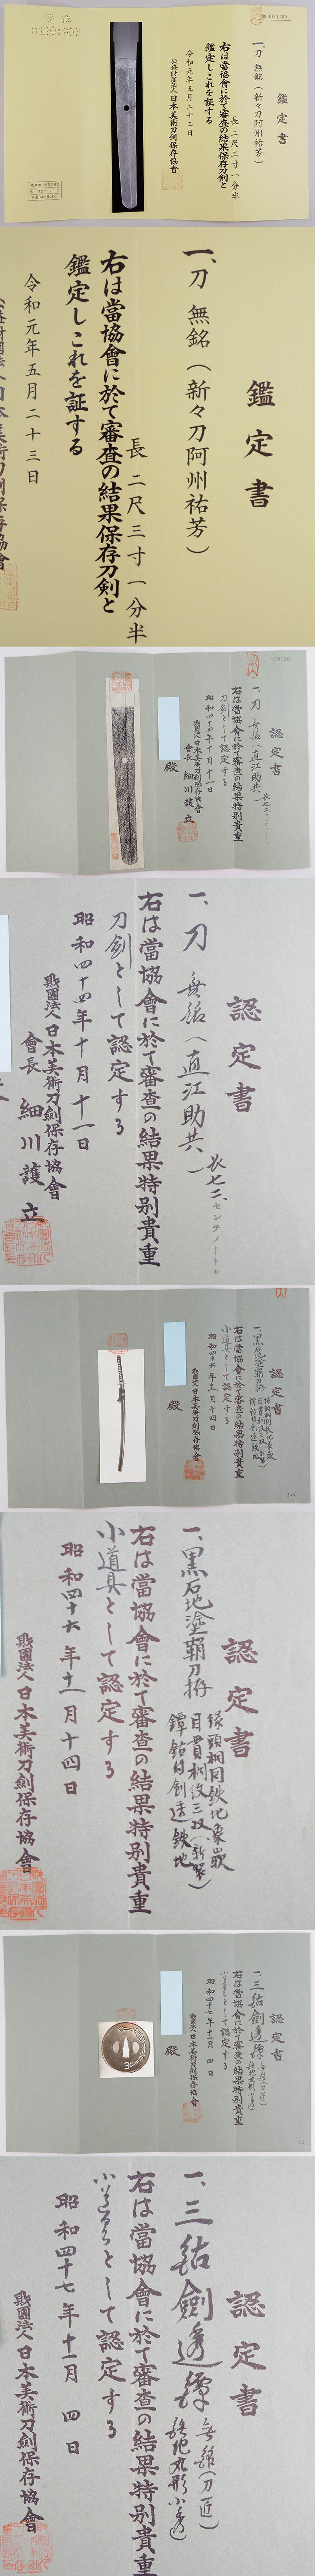 鑑定書
一、刀 無銘(新々刀阿州祐芳)
長 二尺三寸一分半
右は當協會に於て審査の結果保存刀剣と
鑑定しこれを証する
令和元年五月二十三日
公益財団法人日本美術刀剣保存協會
保存
01201903
鑑定書
一、刀 無銘(新々刀阿州祐芳)
長 二尺三寸一分半
右は當協會に於て審査の結果保存刀剣と
鑑定しこれを証する
令和元年五月二十三日
認定書
一、刀 無銘(直江助共)
右は當協會に於て審査の結果特別貴重
刀劍として認定する
昭和四十四年十月十一日
財團法人日本美術刀劍保存協會
會長 細川護立
殿
認定書
一、刀 無銘(直江助共)
長七〇、二センチメートル
右は當協會に於て審査の結果特別貴重
刀劍として認定する
昭和四十四年十月十一日
財團法人日本美術刀劍保存協會
會長 細川護立
認定書
一、黒石地塗鞘刀拵
右は當協會に於て審査の結果特別貴重
小道具として認定する
昭和四十六年十一月十四日
財團法人日本美術刀劍保存協會
殿
認定書
一、黒石地塗鞘刀拵
縁頭桐同鉄地象嵌
目貫桐紋三双(新)
鐔鈷付剣透鉄地
右は當協會に於て審査の結果特別貴重
小道具として認定する
昭和四十六年十一月十四日
財團法人日本美術刀劍保存協會
認定書
一、三鈷劍透鐔
右は當協會に於て審査の結果特別貴重
小道具として認定する
昭和四十七年十一月四日
財團法人日本美術刀劍保存協會
殿
認定書
一、三鈷劍透鐔 無銘(刀匠)
鉄地丸形小透
右は當協會に於て審査の結果特別貴重
小道具として認定する
昭和四十七年十一月四日
財團法人日本美術刀劍保存協會